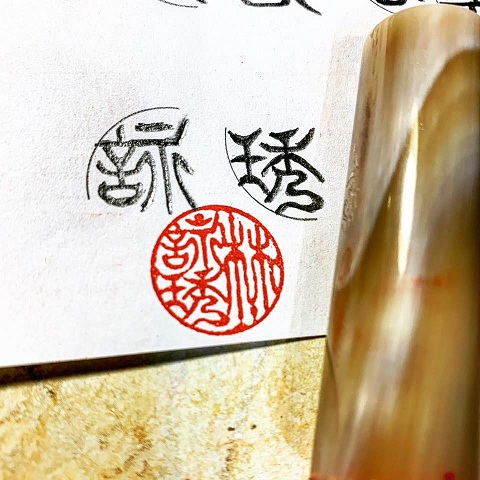 詠 琇
林詠琇